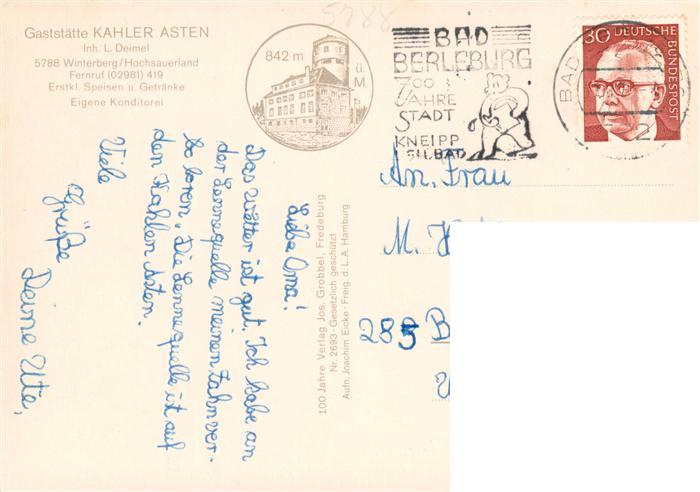 5788
Gaststätte KAHLER ASTEN
Inh. L. Deimel
5788 Winterberg/Hochsauerland
Fernruf (02981) 419
Erstkl. Speisen u. Getränke
Eigene Konditorei
842 m ü. M.
BAD
BERLEBURG
700
JAHRE
STADT
KNEIPP
HEILBAD
BAD
2
30 DEUTSCHE
BUNDESPOST
Liebe Oma!
Das wetter ist gut. Ich habe an
der Lennequelle meinen Zahn ver-
lo loren. Die Lennequelle ist auf
den Kahlen Asten.
Viele
Grüße
Deine Ute,
100 Jahre Verlag Jos. Grobbel, Fredeburg
Nr. 2693 · Gesetzlich geschützt
Aufn. Joachim Eicke · Freig. d. L. A. Hamburg
An. Frau
M. H
285 B